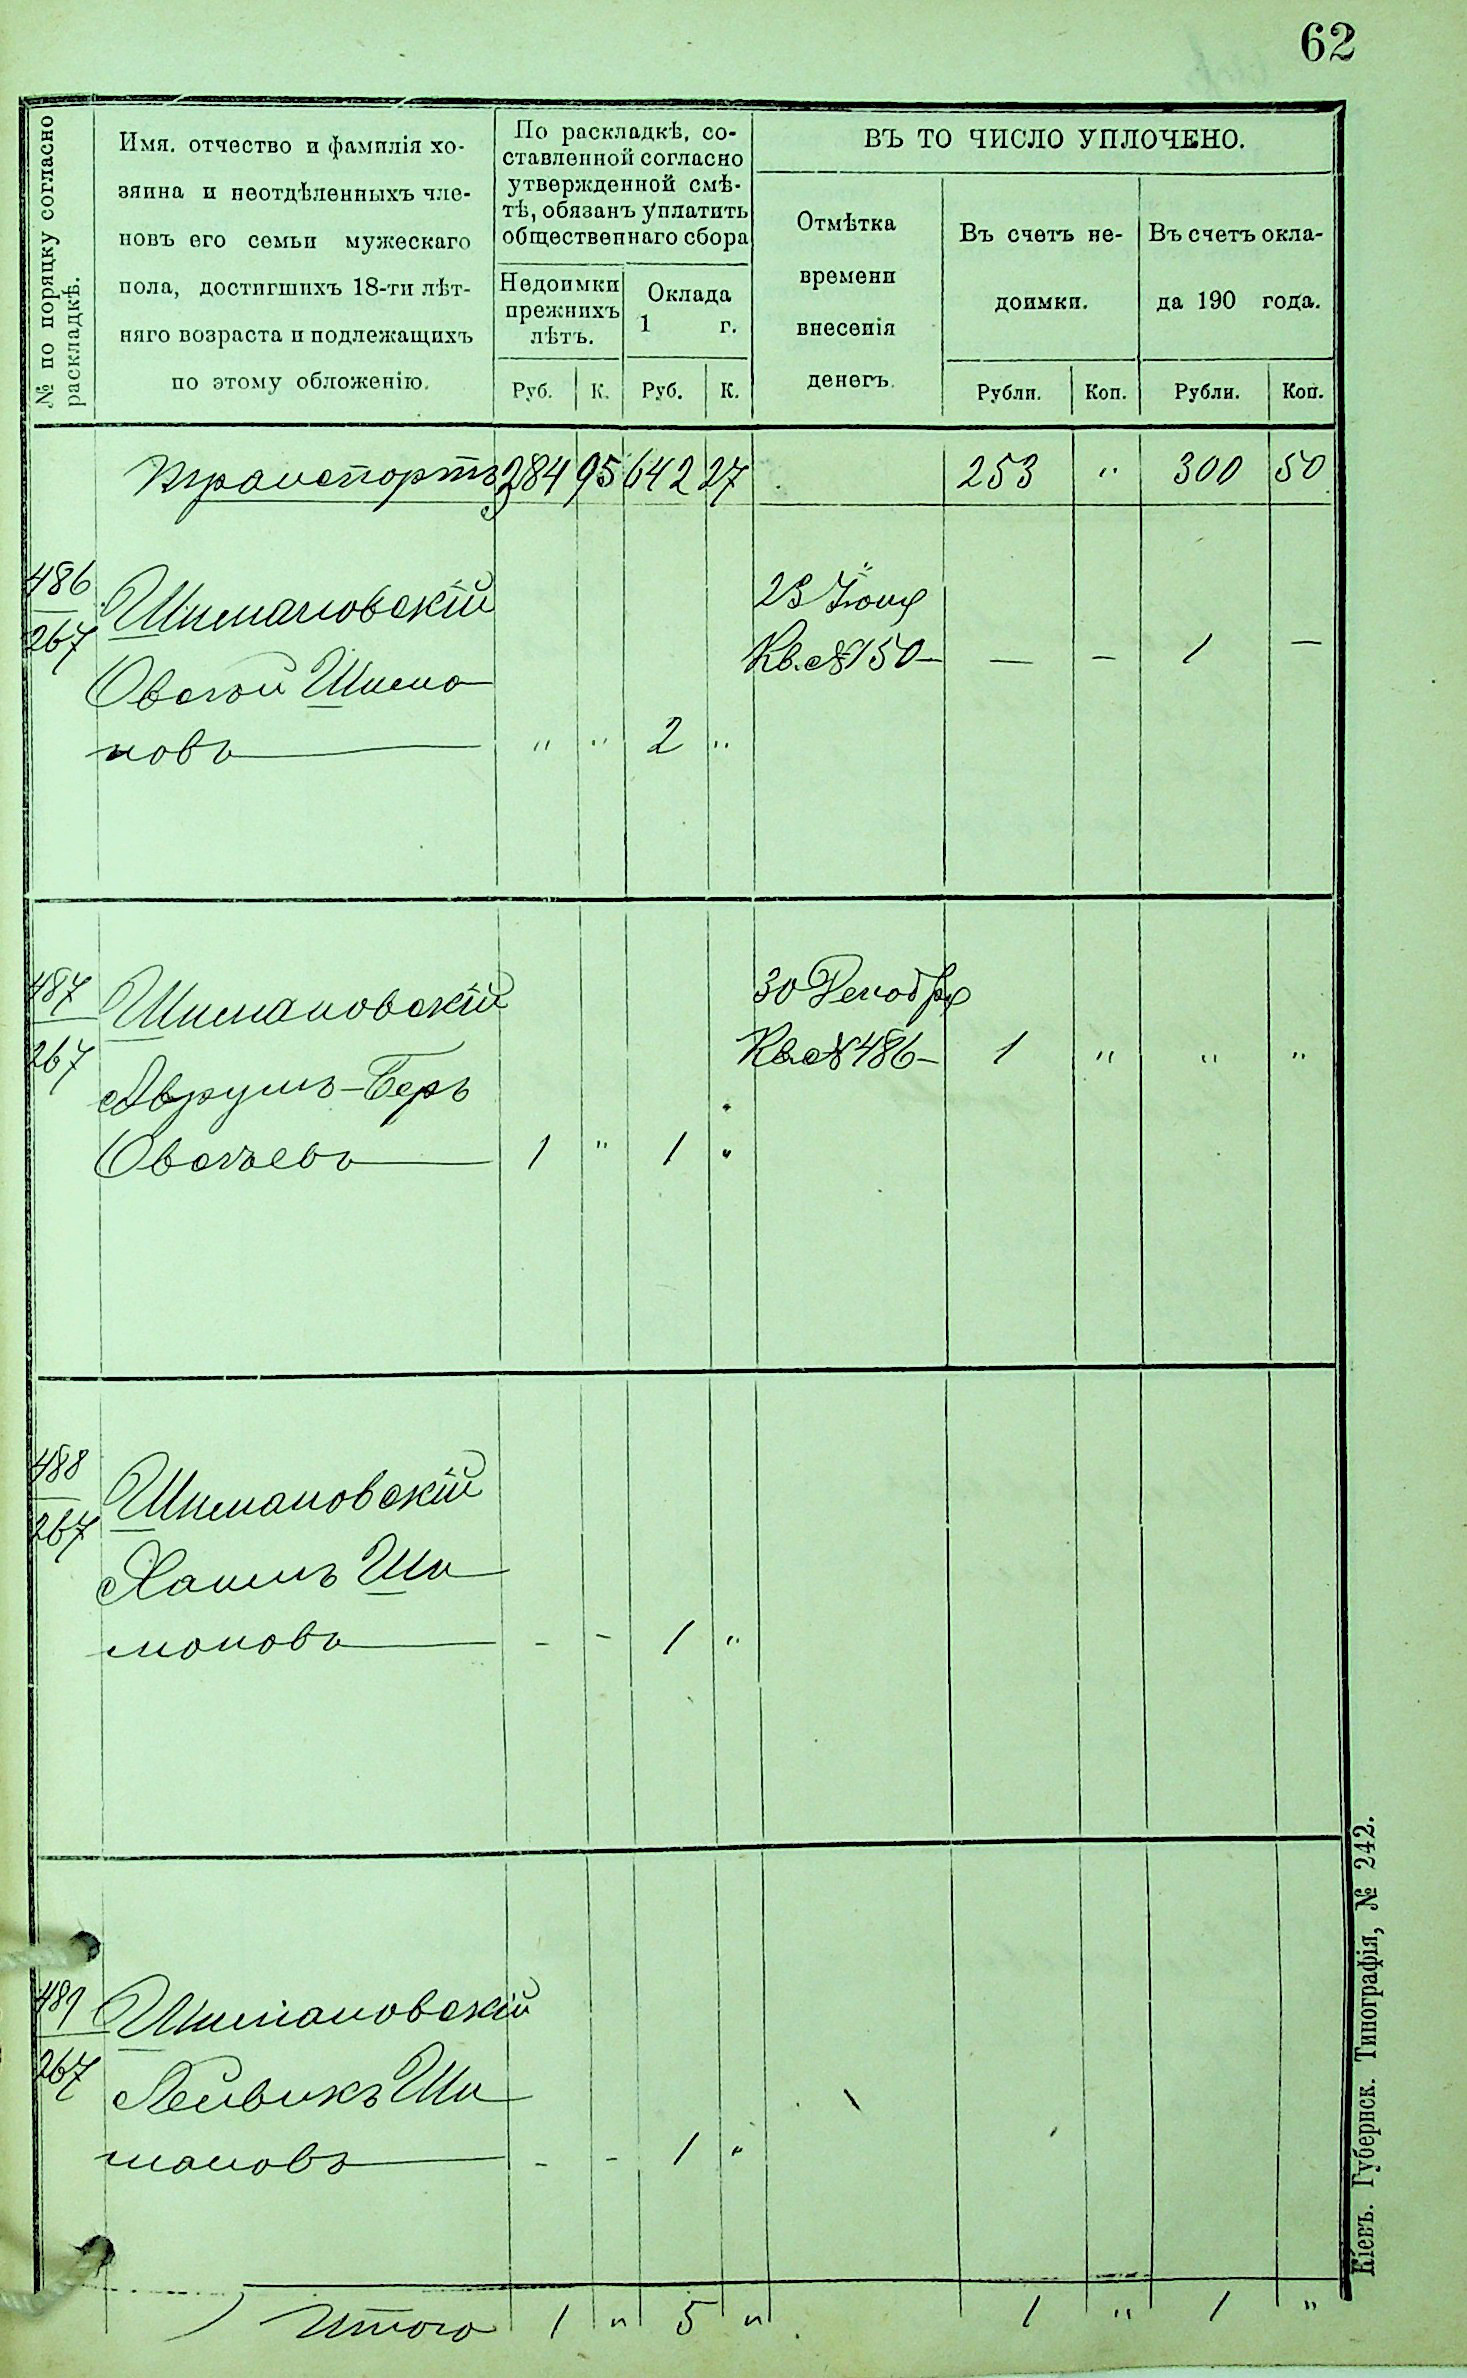 62
№ по поряцку согласно
раскладкѣ.
Имя. отчество и фамилія хо-
зяина и неотдѣленныхъ чле-
новъ его семьи мужескаго
пола, достигшихъ 18-ти лѣт-
няго возраста и подлежащихъ
по этому обложенію.
По раскладкѣ, со-
ставленной согласно
утвержденной смѣ-
тѣ, обязанъ уплатить
общественнаго сбора
Недоимки
прежнихъ
лѣтъ.
Оклада
1 г.
Руб. К. Руб. К.
ВЪ ТО ЧИСЛО УПЛОЧЕНО.
Отмѣтка
времени
внесенія
денегъ.
Въ счетъ не-
доимки.
Въ счетъ окла-
да 190 года.
Рубли. Коп. Рубли. Коп.
Транспортъ 284 95 642 27 253 " 300 50
486
267
Шимановскій
Овсей Шима
новъ " " 2 "
23 Іюня
Кв. № 150 — — — 1 —
487
267
Шимановскій
Аврумъ-Беръ
Овсѣевъ 1 " 1 "
30 Декабря
Кв. № 486 — 1 " " "
488
267
Шимановскій
Хаимъ Ши
мановъ - - 1 "
489
267
Шимановскій
Лейвикъ Ши
мановъ - - 1 "
Итого 1 " 5 " 1 " 1 "
Кіевъ. Губернск. Типографія, № 242.